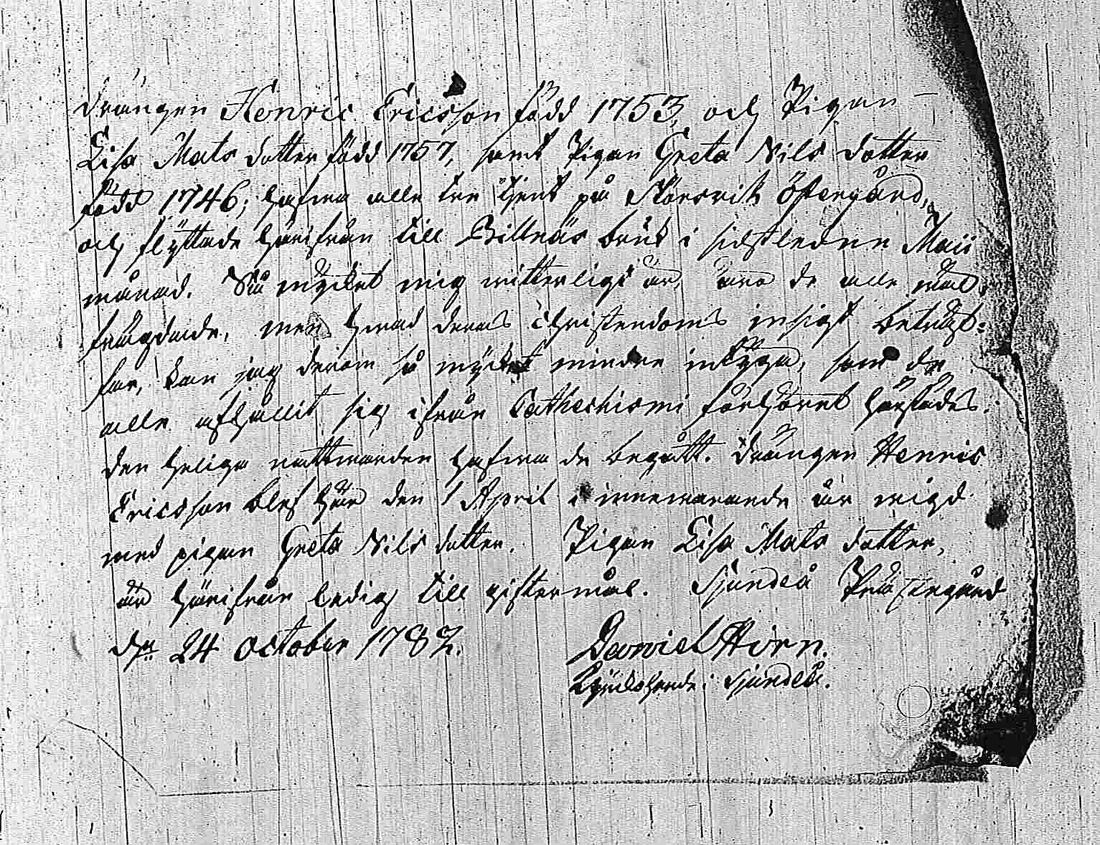 Drängen Henric Ericsson född 1753, och Pigan
Lisa Mats dotter född 1757, samt Pigan Greta Nils dotter
född 1746; hafwa alle tre tjent på Störsvik Östergård,
och flyttade härifrån till Billnäs bruk i sidstledne Maii
månad. Så mycket mig witterligt är, äro de alle wäl
frägdade, men hwad deras Christendoms insigt beträf-
far, kan jag derom så mycket mindre intyga, som de
alle afhållit sig ifrån Catechismi förhöret härstädes.
Den heliga nattwarden hafwa de begått. Drängen Henric
Ericsson blef här den 1 April i innewarande år wigd
med pigan Greta Nils dotter. Pigan Lisa Mats dotter,
är härifrån ledig till giftermål. Sjundeå Prästegård
d. 24 October 1782.
Daniel Hirn.
Kyrkoherde i Sjundeå.